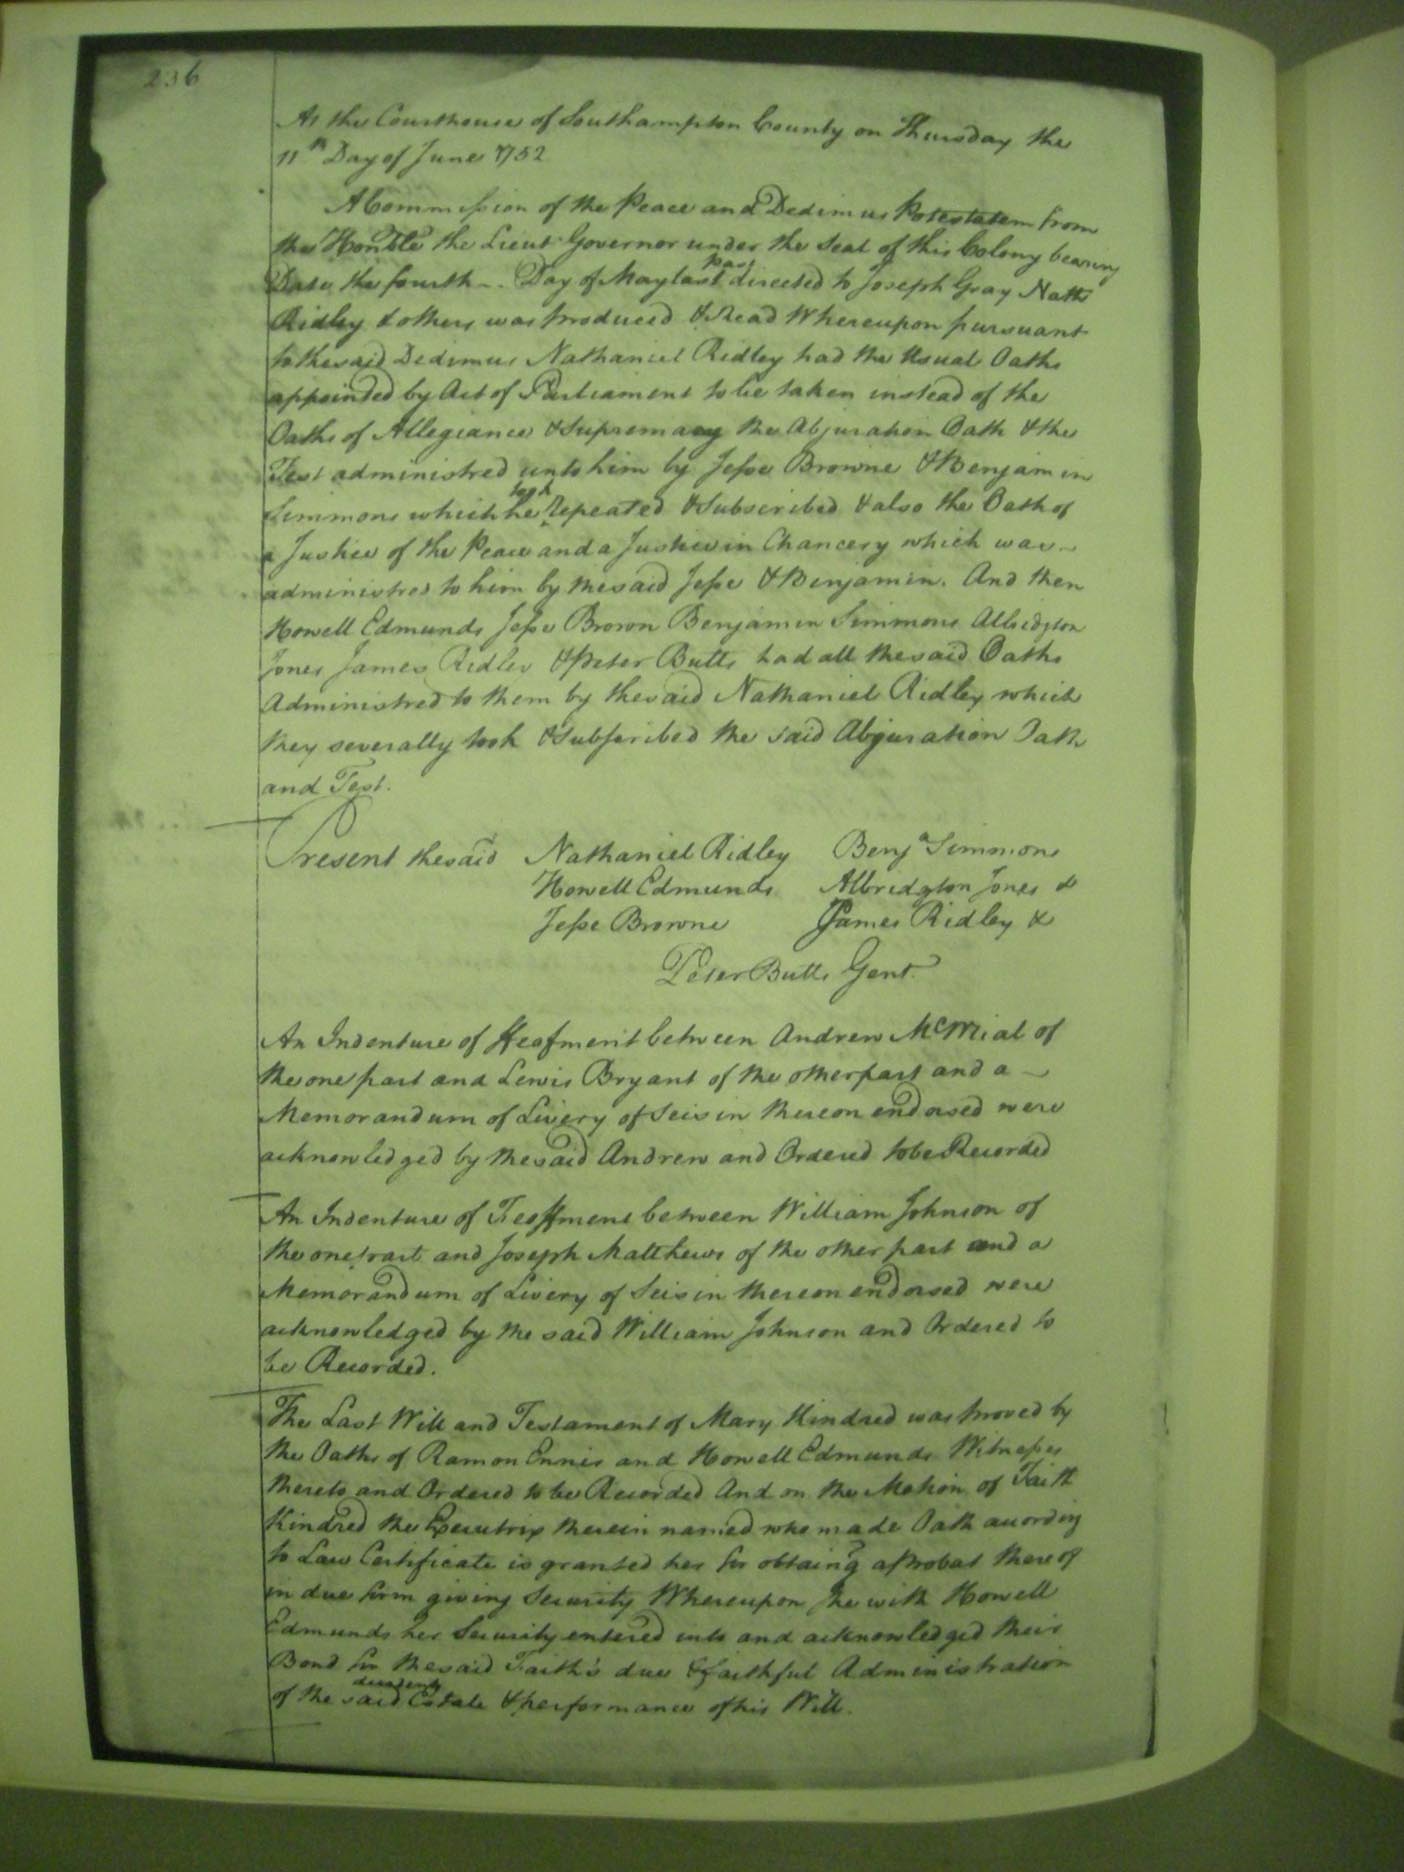 236
At the Courthouse of Southampton County on Thursday the
11th Day of June 1752
A Commission of the Peace and Dedimus Potestatem from
the Honble the Lieut Governor under the Seal of this Colony bearing
Date the fourth - Day of May last past directed to Joseph Gray Nath
Ridley & others was produced & Read Whereupon pursuant
to the said Dedimus Nathaniel Ridley had the Usual Oaths
appointed by Act of Parliament to be taken instead of the
Oaths of Allegiance & Supremacy the Abjuration Oath & the
Test administred unto him by Jesse Browne & Benjamin
Simmons which he took Repeated & Subscribed & also the Oath of
a Justice of the Peace and a Justice in Chancery which was
administred to him by the said Jesse & Benjamin. And then
Howell Edmunds Jesse Brown Benjamin Simmons Albridgton
Jones James Ridley & Peter Butts had all the said Oaths
Administred to them by the said Nathaniel Ridley which
they severally took & Subscribed the said Abjuration Oath
and Test.
Present the said Nathaniel Ridley Benja Simmons
Howell Edmunds Albridgton Jones &
Jesse Browne James Ridley &
Peter Butts Gent.
An Indenture of Feofment between Andrew of
the one part and Lewis Bryant of the other part and a
Memorandum of Livery of Seisin thereon endorsed were
acknowledged by the said Andrew and Ordered to be Recorded
An Indenture of Feoffment between William Johnson of
the one part and Joseph Matthews of the other part and a
Memorandum of Livery of Seisin thereon endorsed were
acknowledged by the said William Johnson and Ordered to
be Recorded.
The Last Will and Testament of Mary Kindred was proved by
the Oaths of Ramon Ennis and Howell Edmunds Witnesses
thereto and Ordered to be Recorded And on the Motion of Faith
Kindred the Executrix therein named who made Oath according
to Law Certificate is granted her for obtaing a Probat thereof
in due form giving Security Whereupon she with Howell
Edmunds her Security entered into and acknowledged their
Bond for the said Faith's due & faithful Administration
of the said decedents Estate & performance of his Will.